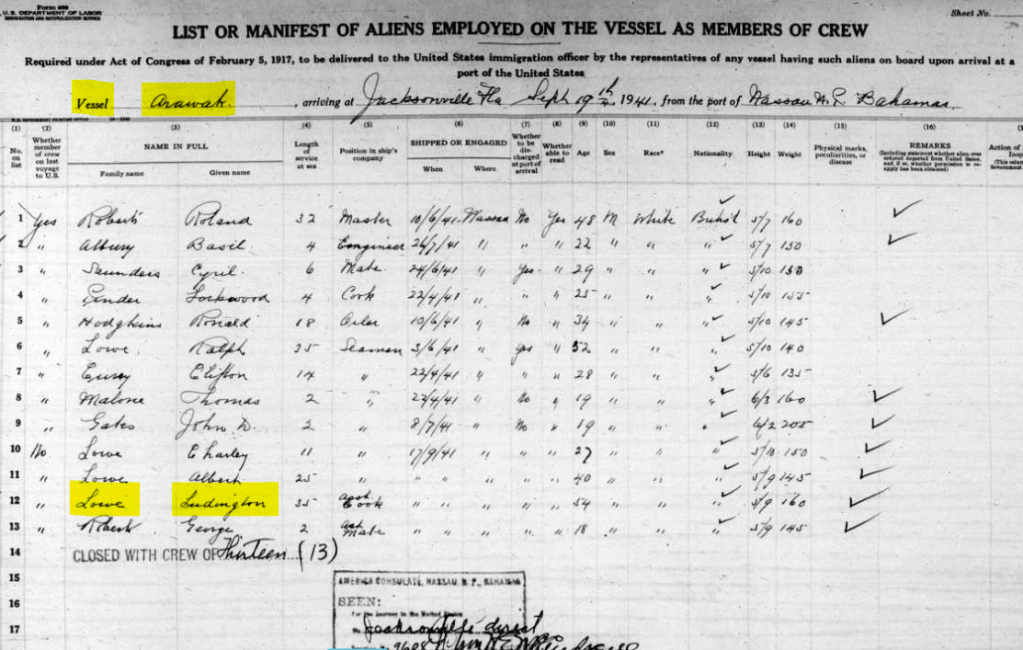 Form 680
U. S. DEPARTMENT OF LABOR
IMMIGRATION AND NATURALIZATION SERVICE
Sheet No.
LIST OR MANIFEST OF ALIENS EMPLOYED ON THE VESSEL AS MEMBERS OF CREW
Required under Act of Congress of February 5, 1917, to be delivered to the United States immigration officer by the representatives of any vessel having such aliens on board upon arrival at a
port of the United States
Vessel Arawak, arriving at Jacksonville Fla Sept 19th, 1941, from the port of Nassau N. P. Bahamas.
(1) (2) (3) (4) (5) (6) (7) (8) (9) (10) (11) (12) (13) (14) (15) (16)
No. on list Whether member of crew on last voyage to U.S. NAME IN FULL Family name Given name Length of service at sea Position in ship's company SHIPPED OR ENGAGED When Where Whether to be discharged at port of arrival Whether able to read Age Sex Race* Nationality Height Weight Physical marks, peculiarities, or disease REMARKS Action of
1 Yes Roberts Roland 32 Master 10/6/41 Nassau No Yes 48 M White British 5/7 160
2 " Albury Basil 4 Engineer 26/7/41 " " " 22 " " " 5/7 150
3 " Saunders Cyril 6 Mate 24/6/41 " Yes " 29 " " " 5/10 150
4 " Pinder Lockwood 4 Cook 22/4/41 " " " 25 " " " 5/10 155
5 " Hodgkins Ronald 18 Oiler 10/6/41 " No " 34 " " " 5/10 145
6 " Lowe Ralph 35 Seaman 3/6/41 " Yes " 52 " " " 5/10 140
7 " Curry Clifton 14 " 22/4/41 " " " 28 " " " 5/6 135
8 " Malone Thomas 2 " 22/4/41 " No " 19 " " " 6/3 160
9 " Gates John D. 2 " 8/7/41 " No " 19 " " " 6/2 205
10 No Lowe Charley 11 " 17/9/41 " " " 27 " " " 5/10 150
11 " Lowe Albert 25 " " " " " 40 " " " 5/9 145
12 " Lowe Ludington 35 asst Cook " " " " 54 " " " 5/9 160
13 " Roberts George 2 asst Mate " " " " 18 " " " 5/9 145
14 CLOSED WITH CREW OF Thirteen (13)
15 AMERICA CONSULATE, NASSAU, N. P., BAHAMAS
16 SEEN:
For the journey to the United States
17 Jacksonville direct